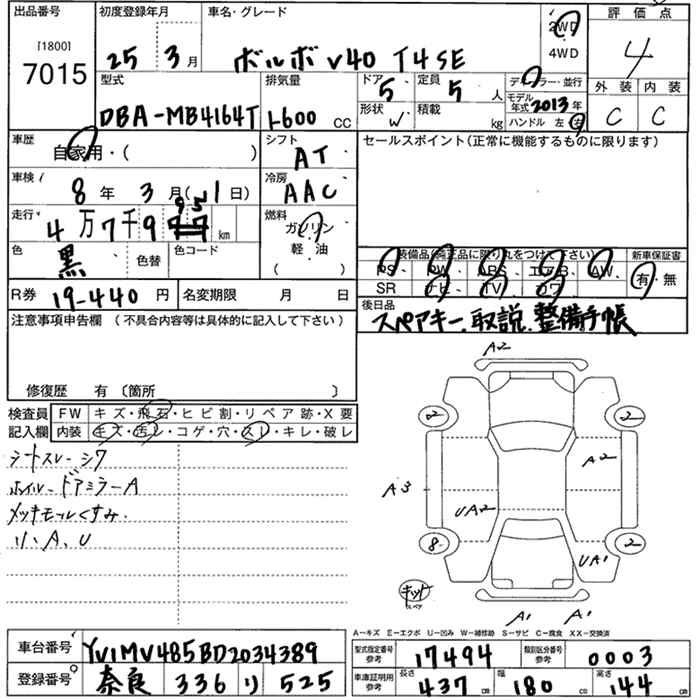 出品番号 初度登録年月 車名・グレード 評価点
[1800] 7015 25年3月 ボルボ V40 T4 SE 2WD 4WD 4
型式 排気量 ドア 5 定員 5人 ディーラー・並行 外装 内装
DBA-MB4164T 1600 CC 形状 W 積載 kg モデル年式 2013年 C C
ハンドル 左 右
車歴 自家用・( ) シフト AT セールスポイント(正常に機能するものに限ります)
車検 8年 3月( 1日) 冷房 AAC
走行 4万7千9 95 77 km 燃料 ガソリン 軽・油 ( )
色 黒 色替 色コード 装備品(純正品に限り丸をつけて下さい) 新車保証書
PS PW ABS エアB AW 有・無
R券 19-440円 名変期限 月 日 SR ナビ TV カワ
後日品
スペアキー、取説、整備手帳
注意事項申告欄 (不具合内容等は具体的に記入して下さい)
修復歴 有 〔箇所 〕
検査員記入欄 FW キズ・飛石・ヒビ割・リペア跡・X要
内装 キズ・汚レ・コゲ・穴・スレ・キレ・破レ
シートスレ・シワ
ホイル・ドアミラーA
メッキモールくすみ.
リ・A、U
A2
2 2
A2
A3
UA2
8 2
UA1
キット
スペア
A1 A1
A-キズ E-エクボ U-凹み W-補修跡 S-サビ C-腐食 XX-交換済
車台番号 YV1MV485BD2034389 型式指定番号 参考 17494 類別区分番号 参考 0003
登録番号 奈良 336 り 525 車庫証明用 参考 長さ 437cm 幅 180cm 高さ 144cm